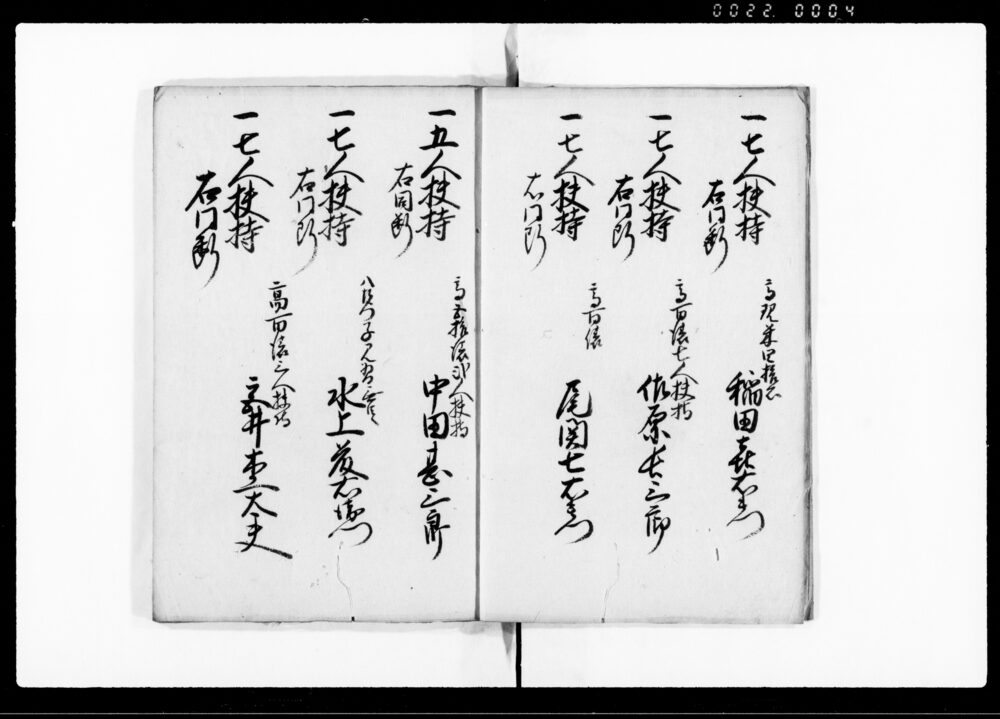 0022. 0004
一七人扶持
右同断
高現米四拾石
稲田喜右衛門
一七人扶持
右同断
高百俵七人扶持
佐原長三郎
一七人扶持
右同断
高百俵
尾関七右衛門
一五人扶持
右同断
高五拾俵弐人扶持
中田甚三郎
一七人扶持
右同断
水上
一七人扶持
右同断
高百俵三人扶持
太夫